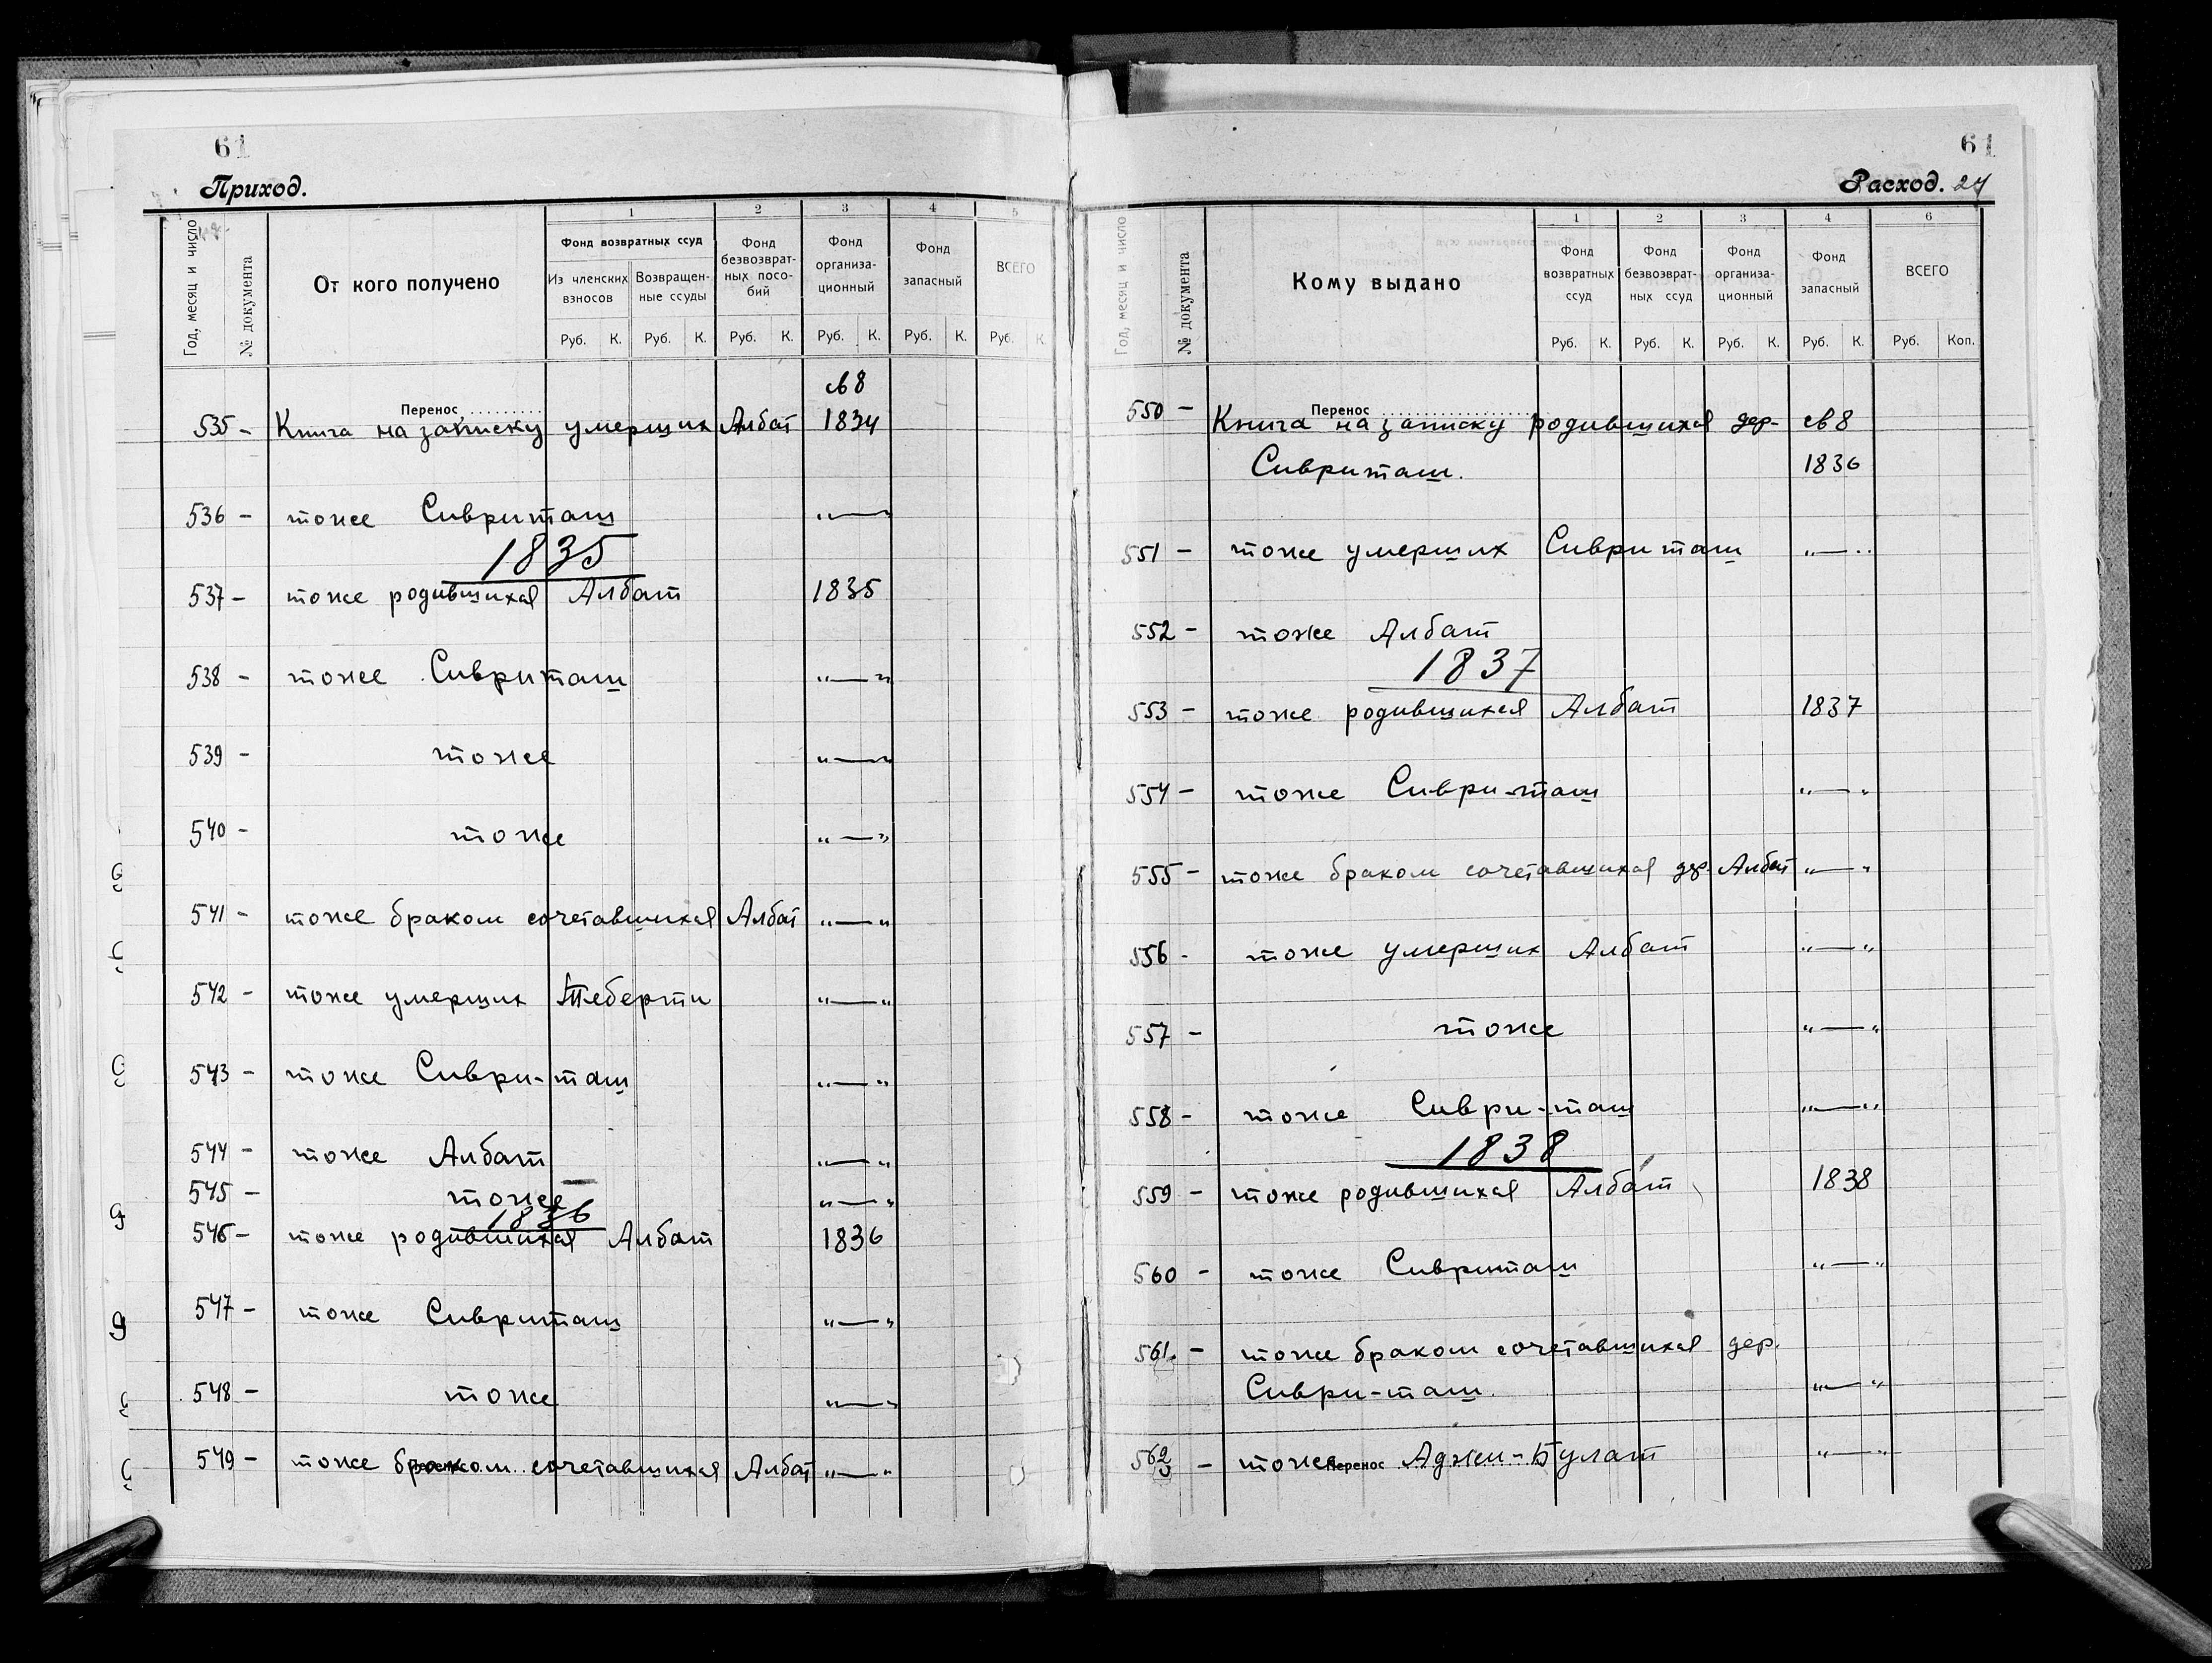 61
Приход.
Год, месяц и число
№ документа
От кого получено
1
Фонд возвратных ссуд
Из членских взносов
Возвращен-ные ссуды
2
Фонд безвозврат-ных посо-бий
3
Фонд организа-ционный
4
Фонд запасный
5
ВСЕГО
Руб. К. Руб. К. Руб. К. Руб. К. Руб. К. Руб. К.
св 8
Перенос
535 - Книга на записку умерших Албат 1834
536 - тоже Сивриташ "—"
1835
537 - тоже родившихся Албат 1835
538 - тоже Сивриташ "—"
539 - тоже "—"
540 - тоже "—"
541 - тоже браком сочетавшихся Албат "—"
542 - тоже умерших Теберти "—"
543 - тоже Сиври-таш "—"
544 - тоже Албат "—"
545 - тоже "—"
1836
546 - тоже родившихся Албат 1836
547 - тоже Сивриташ "—"
548 - тоже "—"
549 - тоже браком сочетавшихся Албат "—"
61
Расход. 24
Год, месяц и число
№ документа
Кому выдано
1
Фонд возвратных ссуд
2
Фонд безвозврат-ных ссуд
3
Фонд организа-ционный
4
Фонд запасный
6
ВСЕГО
Руб. К. Руб. К. Руб. К. Руб. К. Руб. Коп.
Перенос
550 - Книга на записку родившихся дер- св 8
Сивриташ. 1836
551 - тоже умерших Сивриташ "—"
552 - тоже Албат
1837
553 - тоже родившихся Албат 1837
554 - тоже Сиври-таш "—"
555 - тоже браком сочетавшихся др. Албат "—"
556 - тоже умерших Албат "—"
557 - тоже "—"
558 - тоже Сиври-таш "—"
1838
559 - тоже родившихся Албат 1838
560 - тоже Сивриташ "—"
561. - тоже браком сочетавшихся дер.
Сиври-таш. "—"
562/3 - тоже Аджи-Булат "—"
Перенос